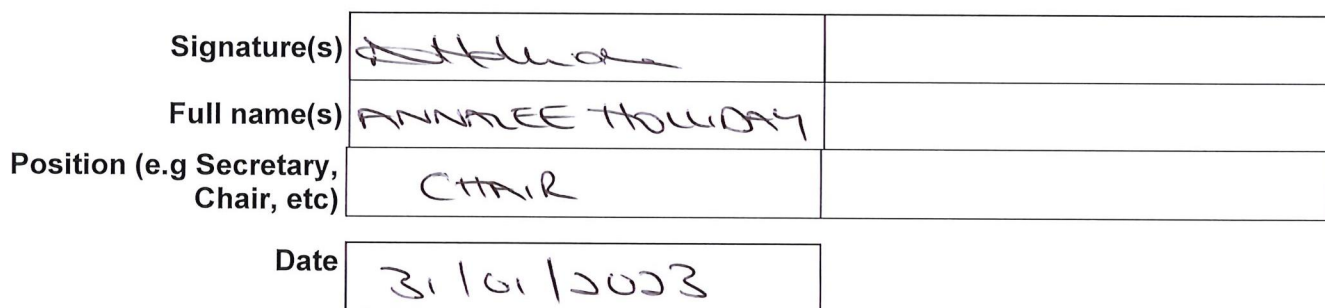 Signature(s)
Full name(s) ANNALEE HOLLIDAY
Position (e.g Secretary,
Chair, etc) CHAIR
Date 31/01/2023